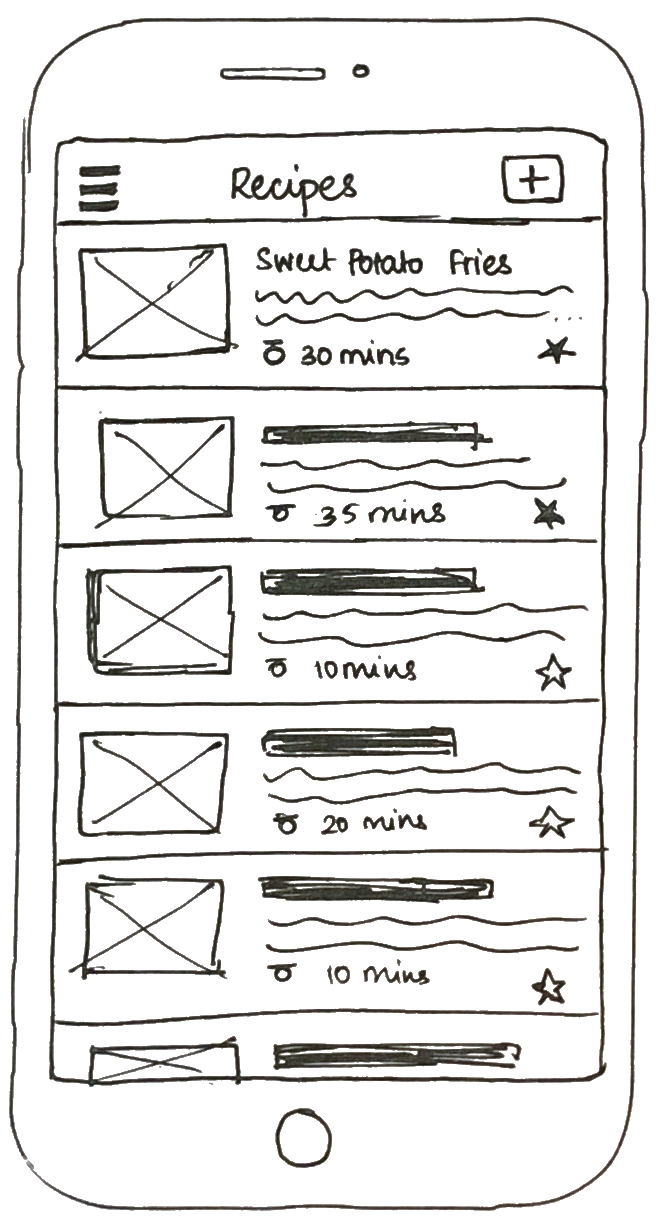 Recipes
Sweet Potato Fries
30 mins
35 mins
10 mins
20 mins
10 mins